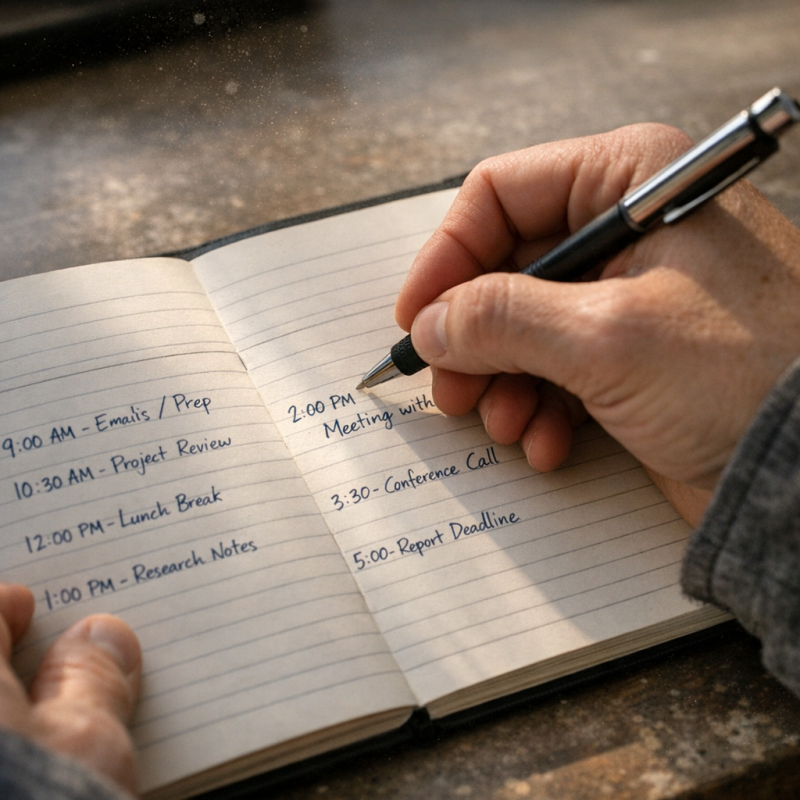 9:00 AM - Emails / Prep
10:30 AM - Project Review
12:00 PM - Lunch Break
1:00 PM - Research Notes
2:00 PM
Meeting with
3:30 - Conference Call
5:00 - Report Deadline